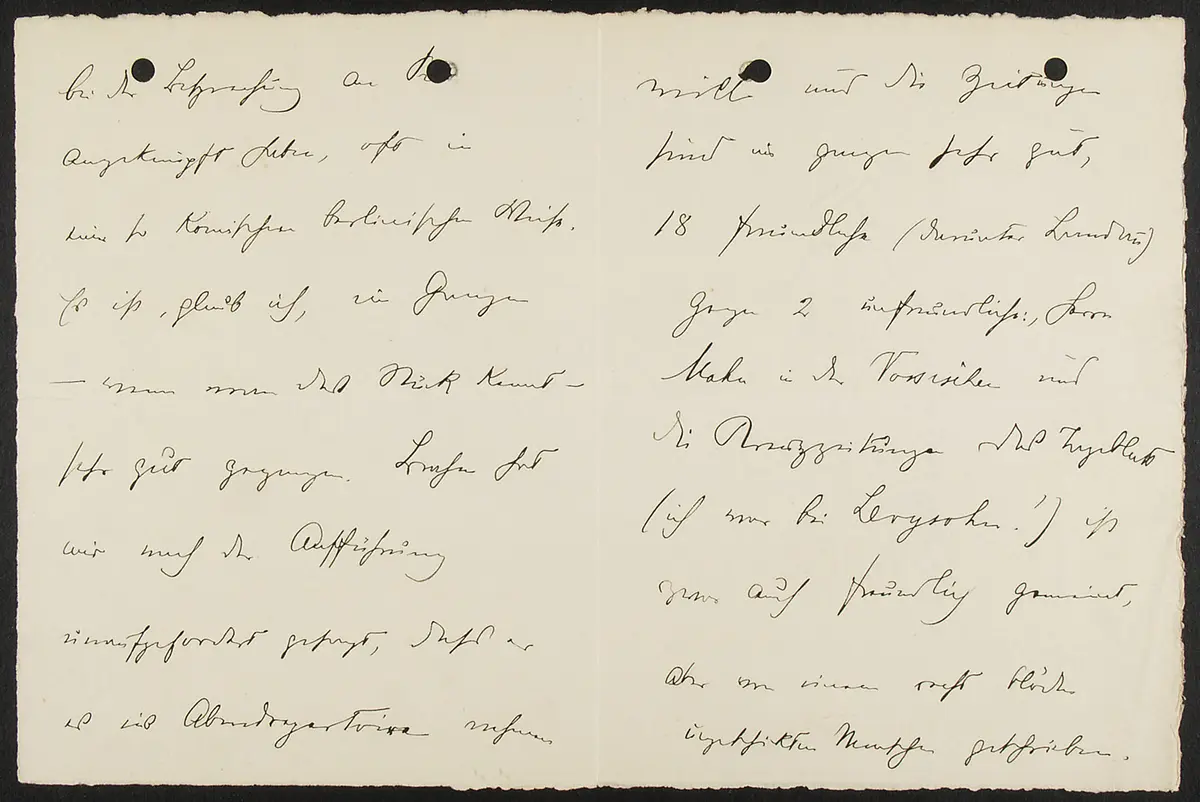 bei der Besprechung an Sie
angeknüpft haben, oft in
einer so komischen berlinischen Weise.
Es ist, glaub ich, im Ganzen
— wenn man das Stück kennt —
sehr gut gegangen. Brahm hat
mir nach der Aufführung
unaufgefordert gesagt, dass er
es ins Abendrepertoire nehmen
will und die Zeitungen
sind im ganzen sehr gut,
18 freundliche (darunter Landau)
gegen 2 unfreundliche:, Herrn
Mahn in der Vossischen und
die Kreuzzeitung das Tageblatt
(ich war bei Levysohn!) ist
zwar auch freundlich gemeint,
aber von einem recht blöden
ungeschickten Menschen geschrieben.